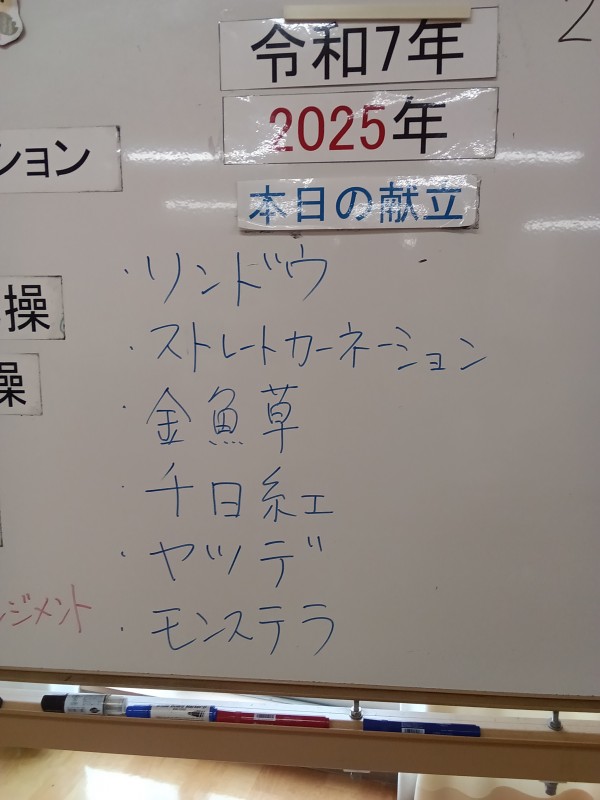 令和7年
2025年
2
ション
本日の献立
操
操
ジメント
・リンドウ
・ストレートカーネーション
・金魚草
・千日紅
・ヤツデ
・モンステラ